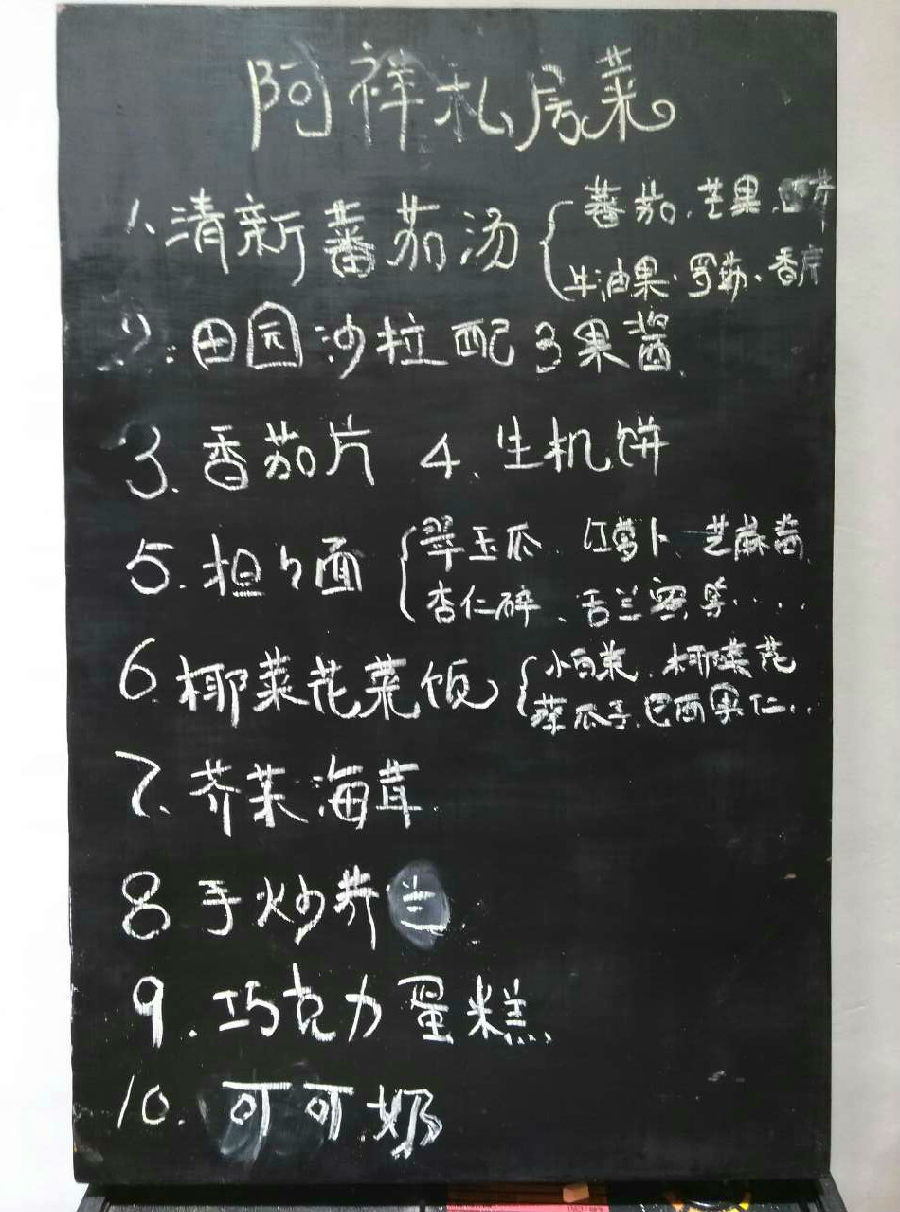 阿祥私房菜
1.清新蕃茄汤 蕃茄.芒果.西芹
牛油果.罗勒.香
2.田园沙拉配3果酱
3.番茄片 4.生机饼
5.担々面 翠玉瓜、红萝卜、芝麻酱
杏仁碎、舌兰蜜等.....
6.椰菜花菜饭 小白菜.椰菜花
葵瓜子.巴西果仁...
7.芥末海茸
8 手炒芥兰
9.巧克力蛋糕
10.可可奶